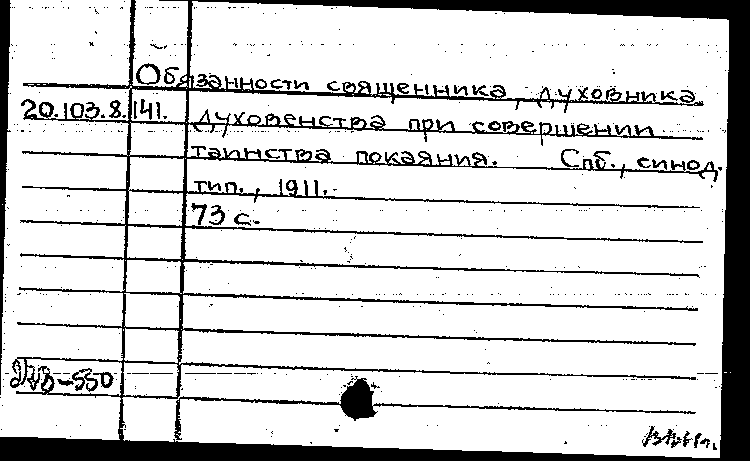 Обязанности священника, духовника
20.103.8.141. духовенства при совершении
таинства покаяния. Спб., синод.
тип., 1911.
73 с.